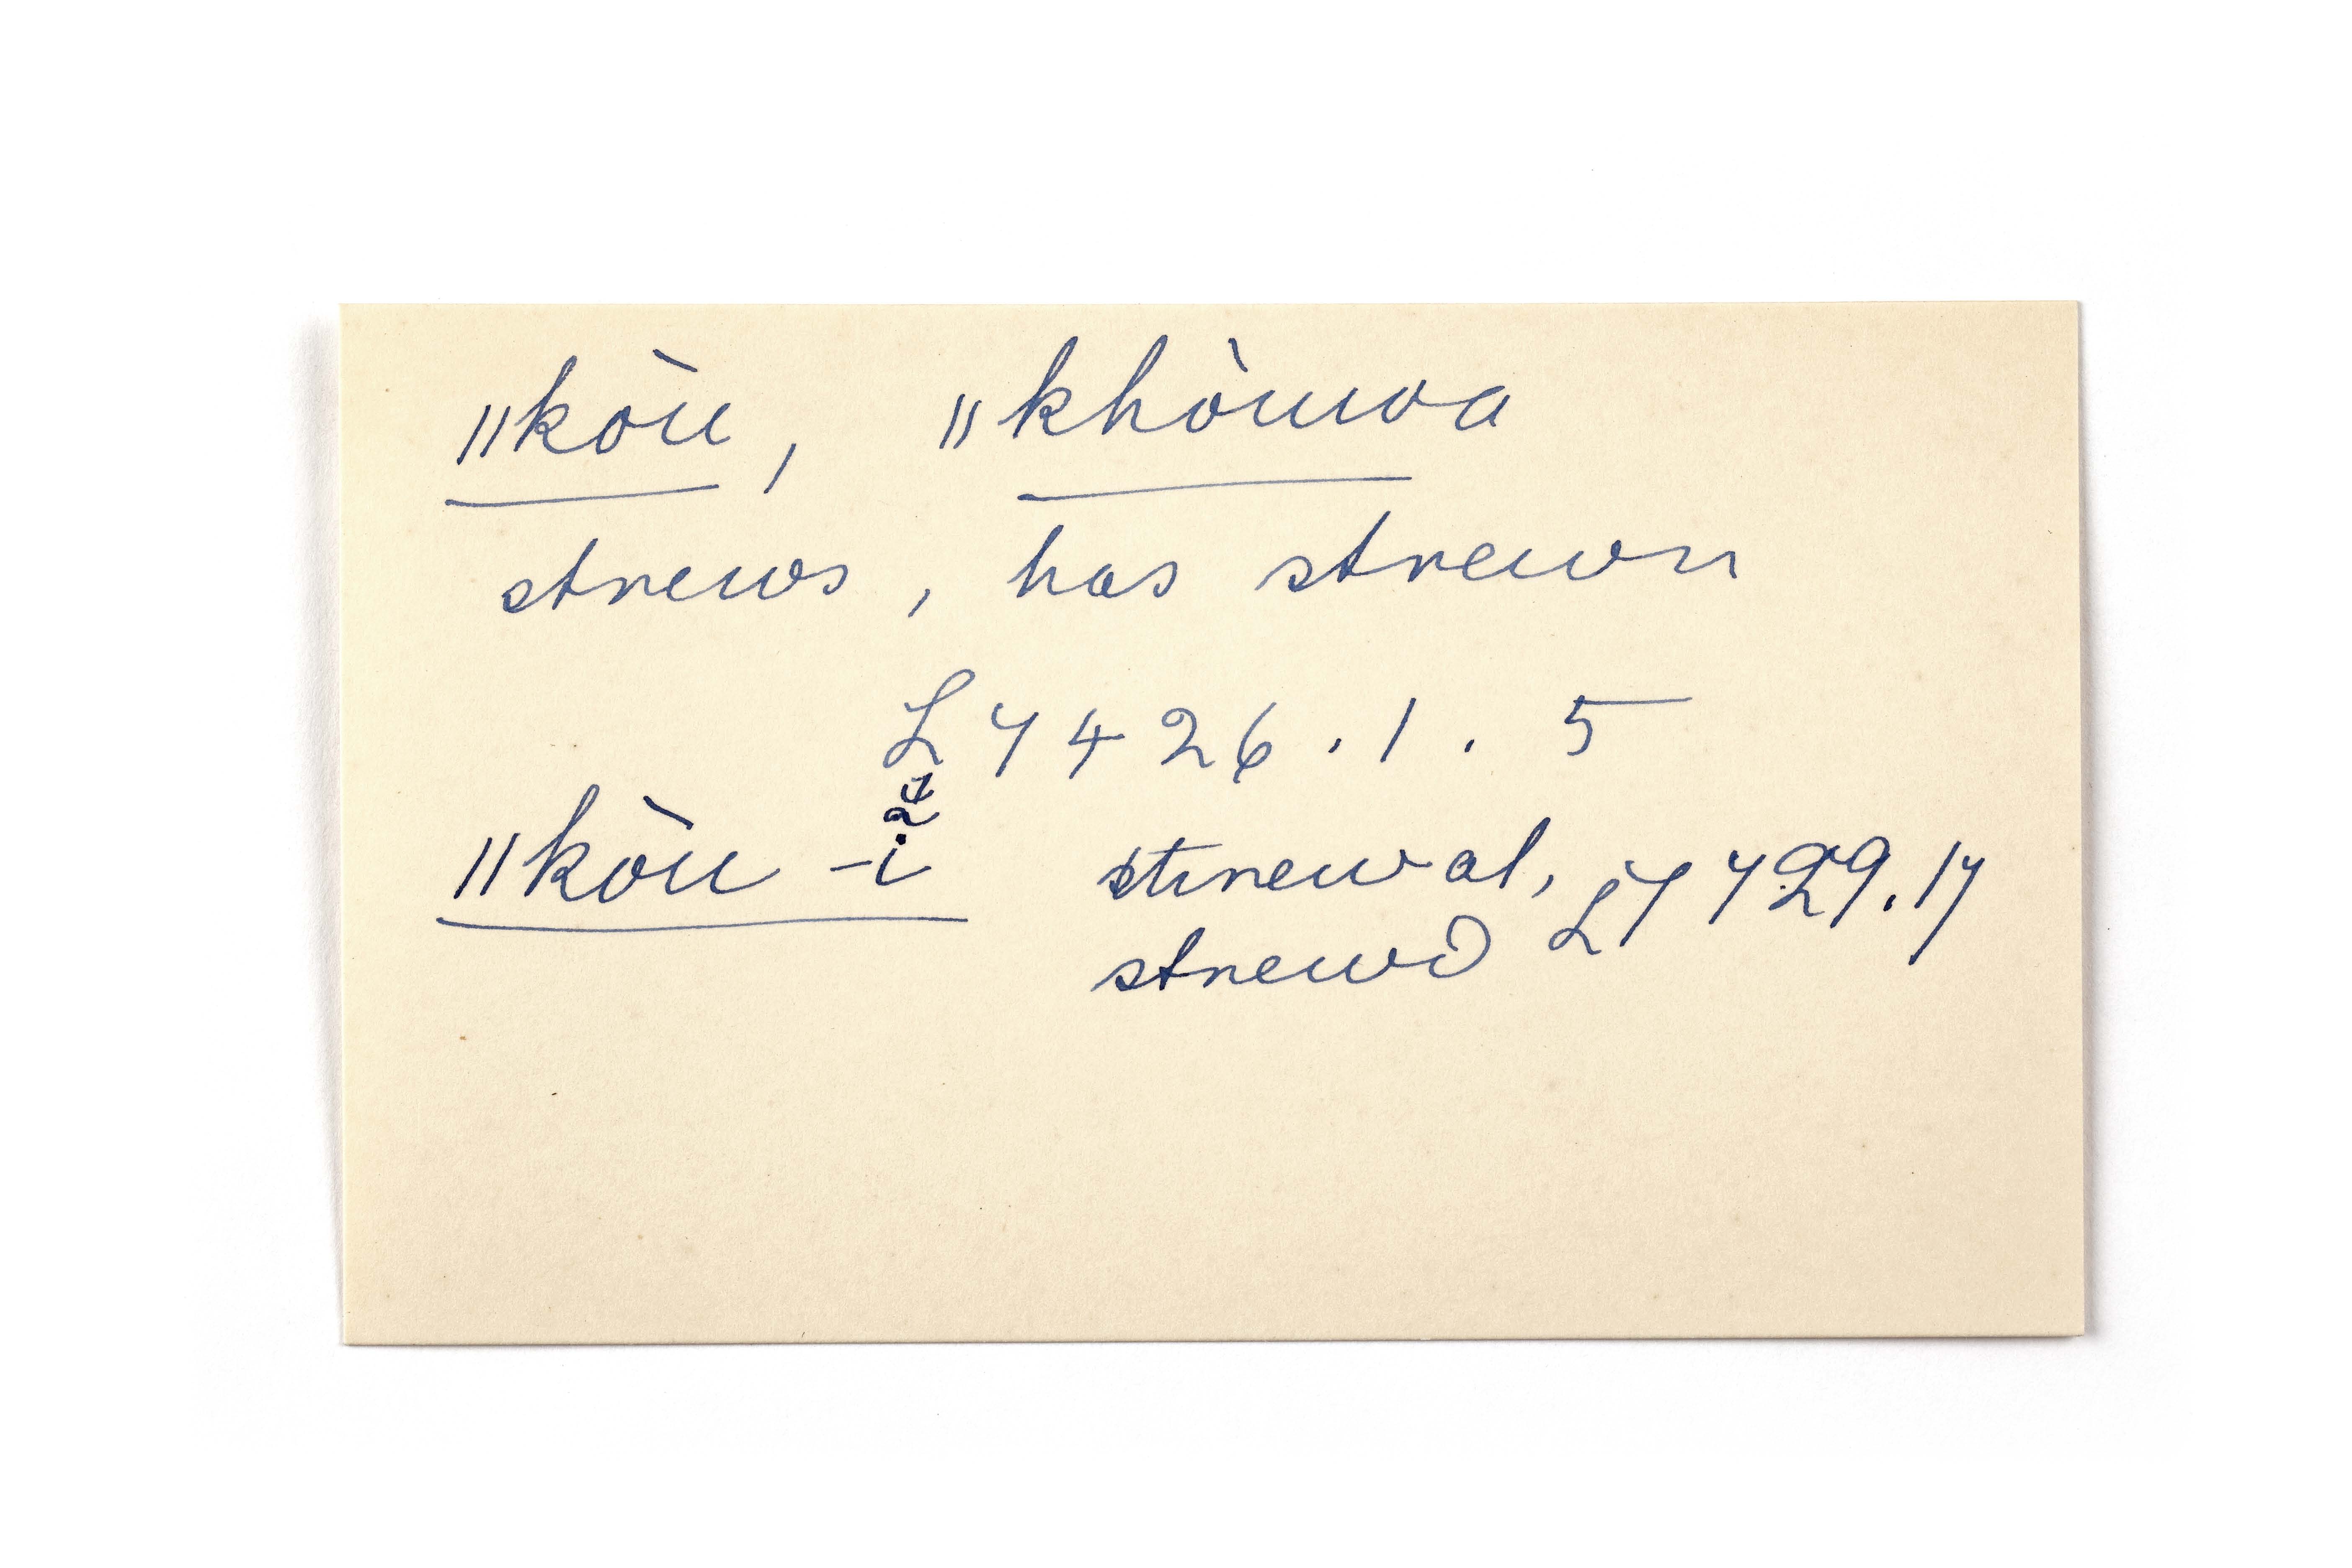 "kòu, "khòuwa
strews, has strewn
L7426.1.5
"kòu -i strew al,
strewd